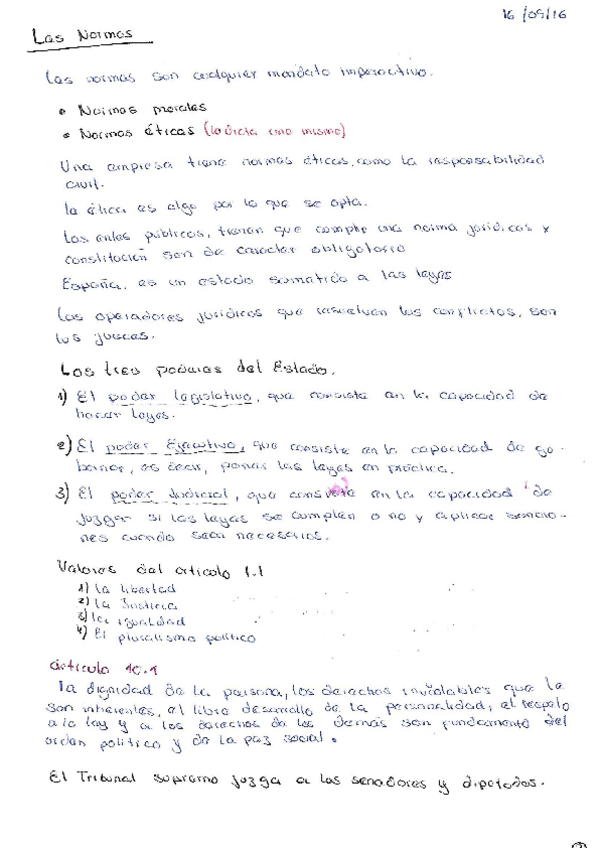 16/09/16
Las Normas
Las normas son cualquier mandato imperactivo.
• Normas morales
• Normas éticas (lo dicta uno mismo)
Una empresa tiene normas éticas, como la responsabilidad
civil.
la ética es algo por lo que se opta.
Los entes públicos, tienen que cumplir una norma jurídicas y
constitución son de caracter obligatorio
España, es un estado sometido a las leyes
Los operadores jurídicos que resuelven los conflictos, son
los jueces.
Los tres poderes del Estado.
1) El poder legislativo, que consiste en la capacidad de
hacer leyes.
2) El poder Ejecutivo, que consiste en la capacidad de go-
bernar, es decir, poner las leyes en práctica.
3) El poder Judicial, que consiste en la capacidad de
juzgar si las leyes se cumplen o no y aplicar sancio-
nes cuando sean necesarios.
Valores del artículo 1.1
1) La libertad
2) La Justicia
3) La igualdad
4) El pluralismo político
artículo 10.1
La dignidad de la persona, los derechos inviolables que le
son inherentes, el libre desarrollo de la personalidad, el respeto
a la ley y a los derechos de los demás son fundamento del
orden político y de la paz social.
El Tribunal supremo juzga a los senadores y dipetodos.